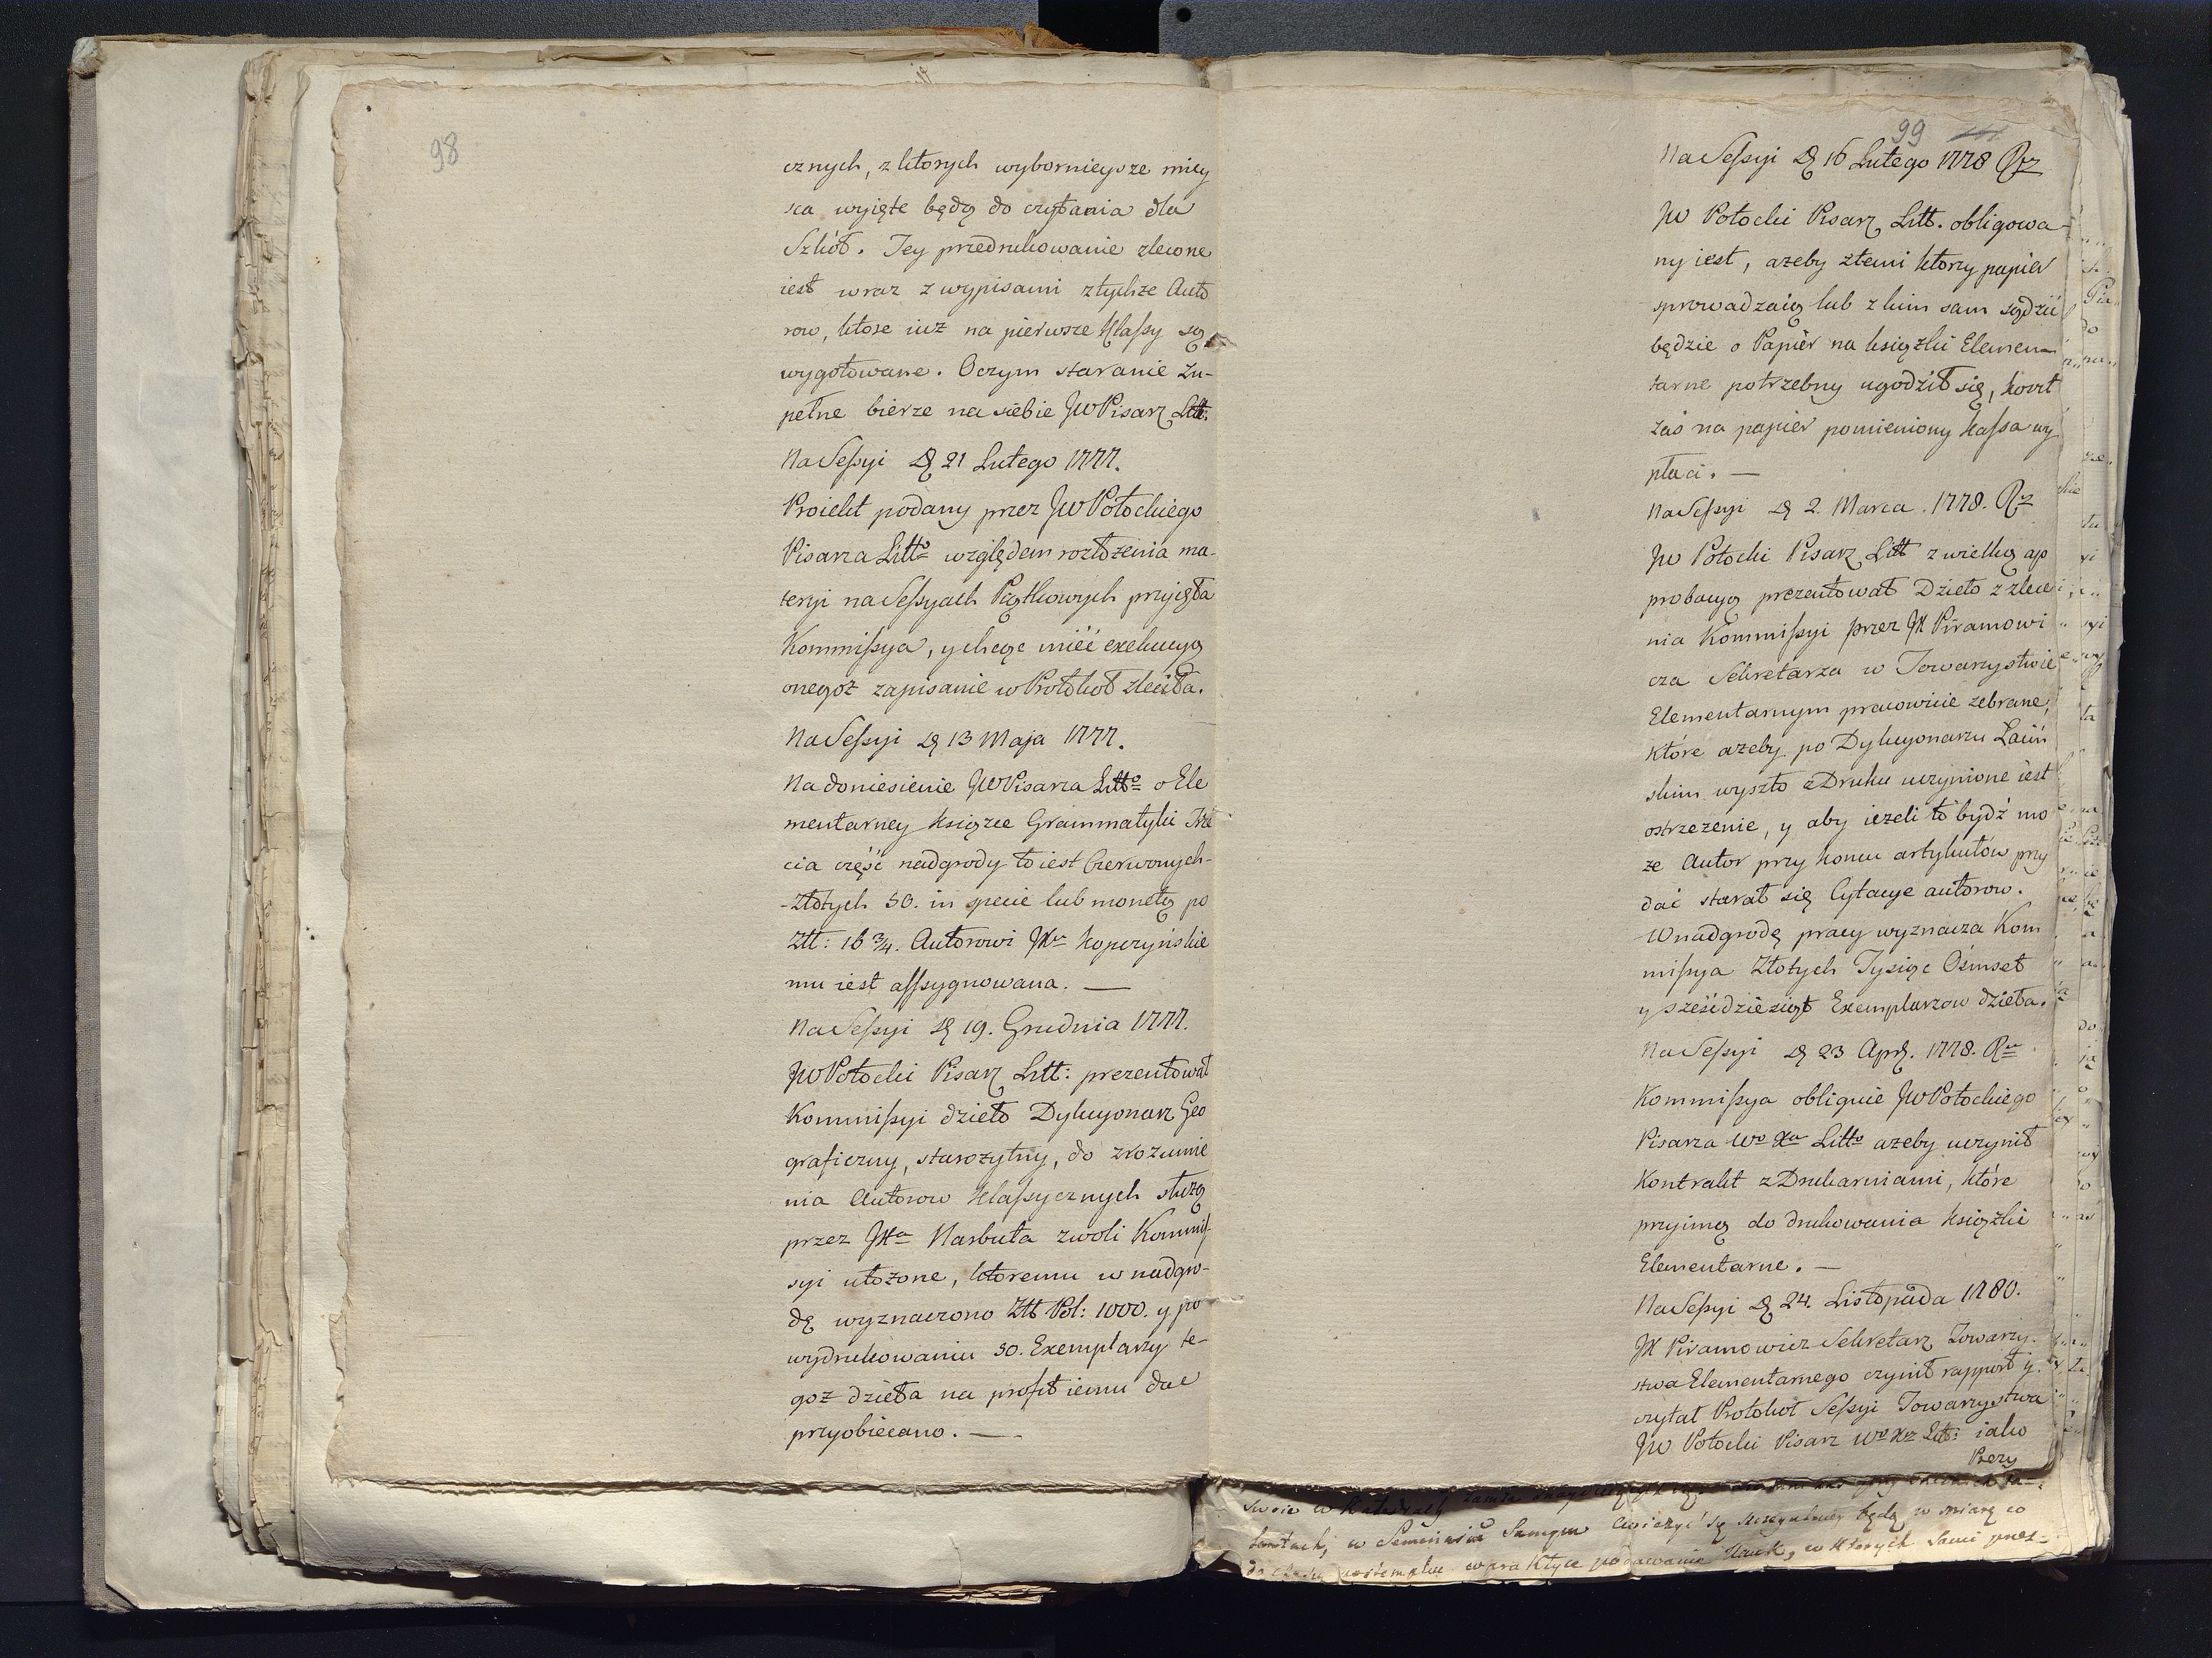 98
cznych, z ktorych wybornieysze miey
sca wyięte będą do czytania dla
Szkół. Jey przedrukowanie zlecone
iest wraz z wypisami z tychże Auto
row, ktore iuż na pierwsze Klassy są
wygotowane. O czym staranie zu-
pełne bierze na siebie JW Pisarz Litt.
Na Sessyi D. 21 Lutego 1777.
Proiekt podany przez JW Potockiego
Pisarza Litto względem rozłożenia ma-
teryi na Sessyach Piątkowych przyięła
Kommissya, y chcąc mieć exekucyą
onegoż zapisanie w Protokoł zleciła.
Na Sessyi D. 13 Maja 1777.
Na doniesienie JW Pisarza Litto o Ele
mentarney książce Grammatyki Trze
cia część nadgrody to iest Czerwonych-
-Złotych 50. in specie lub monetą po
Złł: 16 3/4. Autorowi JXu Kopczyńskie
mu iest assygnowana. —
Na Sessyi D. 19. Grudnia 1777.
JW Potocki Pisarz Litt: prezentował
Kommissyi dzieło Dykcyonarz Geo
graficzny, starożytny, do zrozumie
nia Autorow Klassycznych służą
przez JXa Narbuta z woli Kommis
syi ułożone, ktoremu w nadgro-
dę wyznaczono Złł Pol: 1000. y po
wydrukowaniu 50. Exemplarzy te-
goż dzieła na profit iemu dać
przyobiecano. —
99
Na Sessyi D. 16 Lutego 1778 Rz
JW Potocki Pisarz Litt. obligowa
ny iest, ażeby z temi ktorzy papier
sprowadzaią lub z kim sam sądzić
będzie o Papier na książki Elemen-
tarne potrzebny ugodził się, koszt
zaś na papier pomieniony kassa wy
płaci. —
Na Sessyi D. 2. Marca. 1778. Rz
JW Potocki Pisarz Litt z wielką ap
probacyą prezentował Dzieło z zlece
nia Kommissyi przez JX Piramowi
cza Sekretarza w Towarzystwie
Elementarnym pracowicie zebrane,
które ażeby po Dykcyonarzu Łaciń
skim wyszło z Druku uczynione iest
ostrzeżenie, y aby ieżeli to bydź mo
że Autor przy koncu artykułów przy
dać starał się Cytacye autorow.
W nadgrodę pracy wyznacza Kom
missya Złotych Tysiąc Ośmset
y sześćdziesiąt Exemplarzow dzieła.
Na Sessyi D. 23 Apr. 1778. Ru
Kommissya obliguie JW Potockiego
Pisarza Wo Xa Litto ażeby uczynił
Kontrakt z Drukarniami, które
przyimą do drukowania książki
Elementarne. —
Na Sessyi D. 24. Listopada 1780.
JX Piramowicz Sekretarz Towarzy-
stwa Elementarnego czynił rapport y
czytał Protokoł Sessyi Towarzystwa
JW Potocki Pisarz Wo Xa Litt: iako
Prezy
w Seminarium Samym ćwiczyć się będą w miarę co
w praktyce podawanie Nauk, w ktorych sami